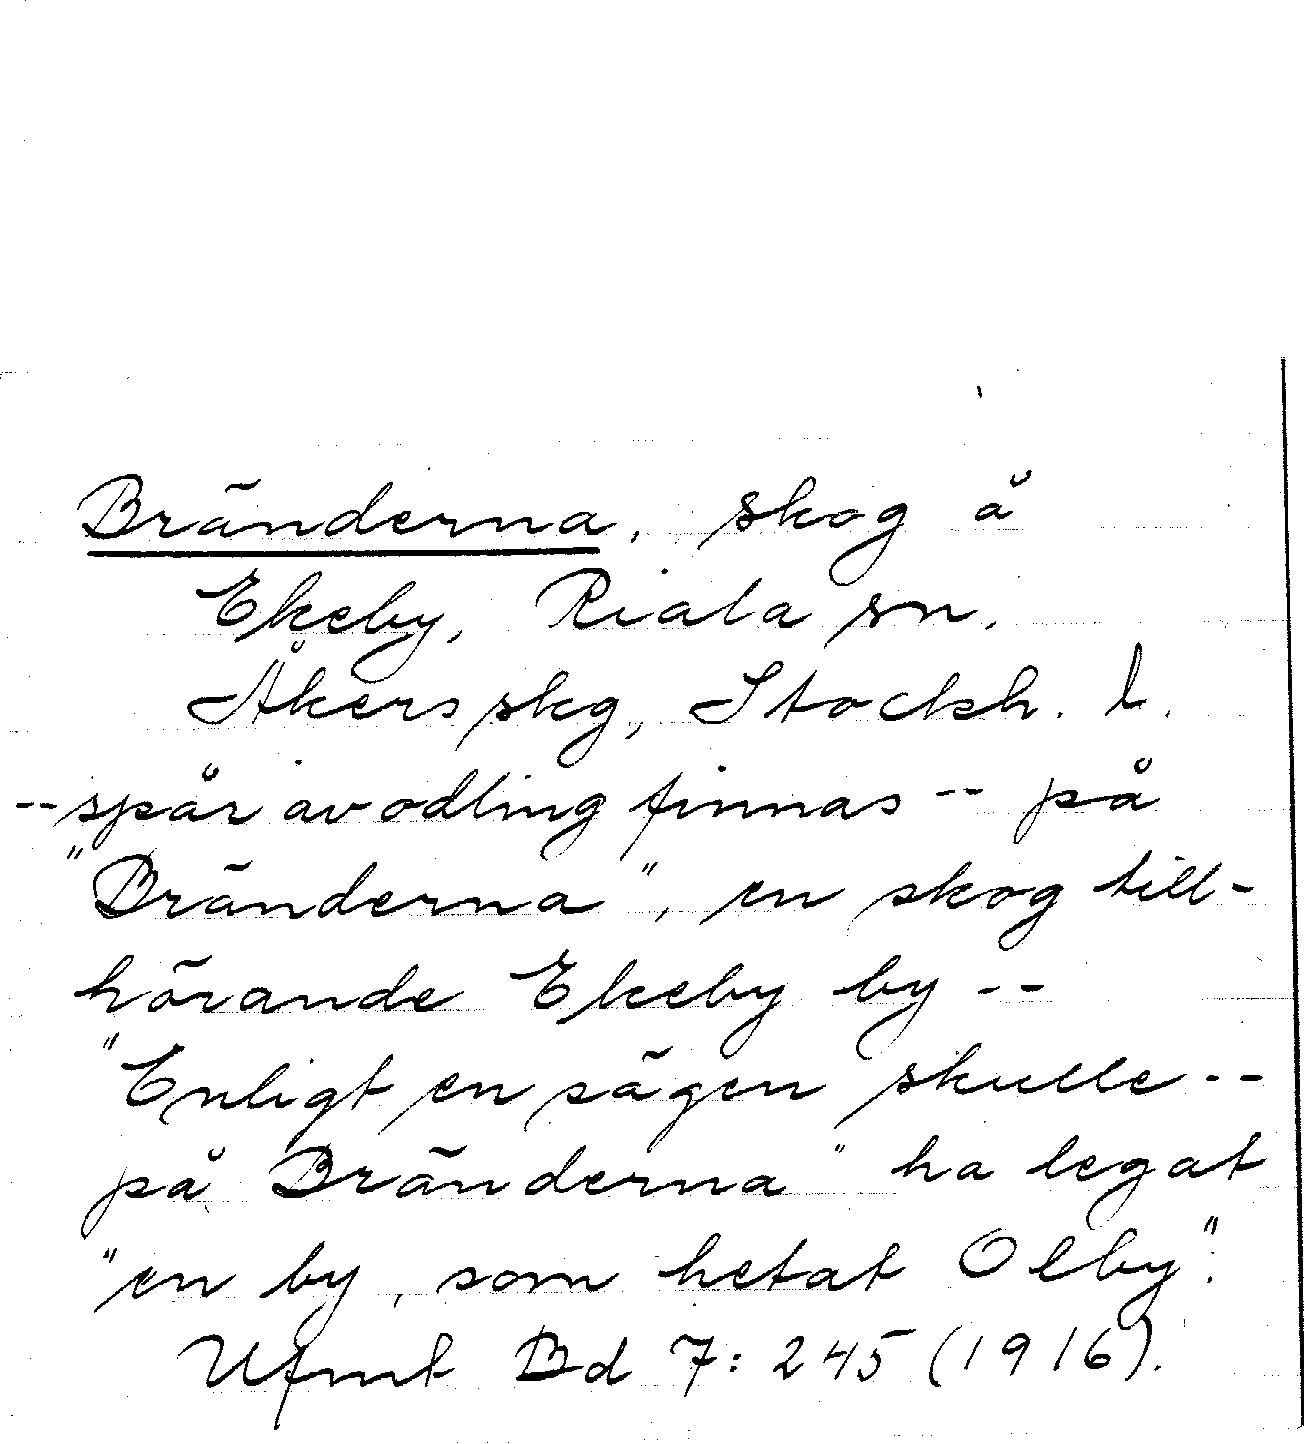 Bränderna, skog å
Ekeby, Riala sn.
Åkers skg, Stockh. l.
-- spår av odling finnas -- på
"Bränderna", en skog till-
hörande Ekeby by --
"Enligt en sägen skulle --
på Bränderna" ha legat
"en by, som hetat Olby".
Ufmt Bd 7: 245 (1916).